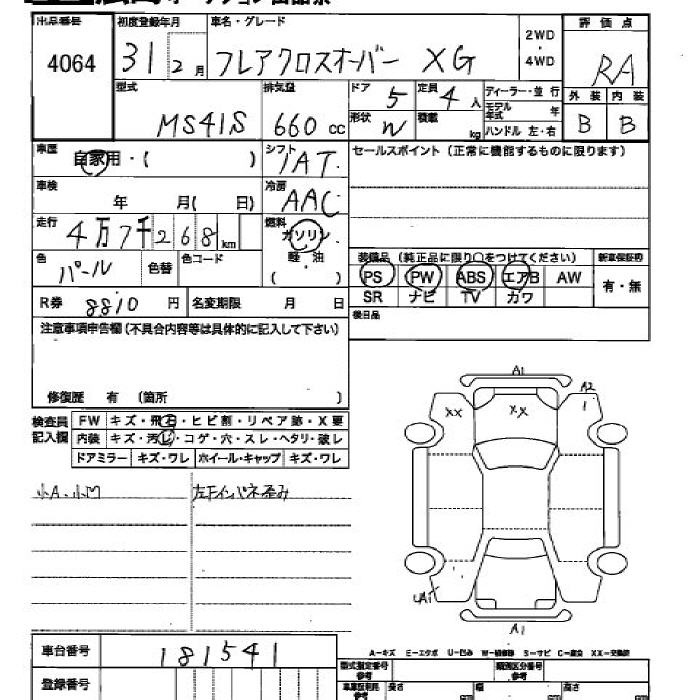 出品番号 4064
初度登録年月 31 2月
車名・グレード フレアクロスオーバー XG
2WD ・ 4WD
評価点 RA
外装 B 内装 B
型式 MS41S
排気量 660 cc
ドア 5 定員 4 人
形状 W 積載 kg
ディーラー・並行
モデル年式 年
ハンドル 左・右
車歴 自家用・( )
シフト IAT
車検 年 月( 日)
冷房 AAC
走行 4万7千268km
燃料 ガソリン 軽・油 ( )
色 パール 色替 色コード
R券 8810円 名変期限 月 日
セールスポイント(正常に機能するものに限ります)
装備品(純正品に限り○をつけてください) 新車保証書
PS PW ABS エアB AW 有・無
SR ナビ TV カワ
後日品
注意事項申告欄(不具合内容等は具体的に記入して下さい)
修復歴 有 (箇所 )
検査員記入欄
FW キズ・飛石・ヒビ割・リペア跡・X要
内装 キズ・汚レ・コゲ・穴・スレ・ヘタリ・破レ
ドアミラー キズ・ワレ ホイール・キャップ キズ・ワレ
小A、小凹
左下インパネ歪み
A1
A2
XX
XX
1
A1
車台番号 181541
登録番号
A-キズ E-エクボ U-凹み W-補修跡 S-サビ C-腐食 XX-交換済
型式指定番号 参考
類別区分番号 参考
長さ cm 幅 cm 高さ cm